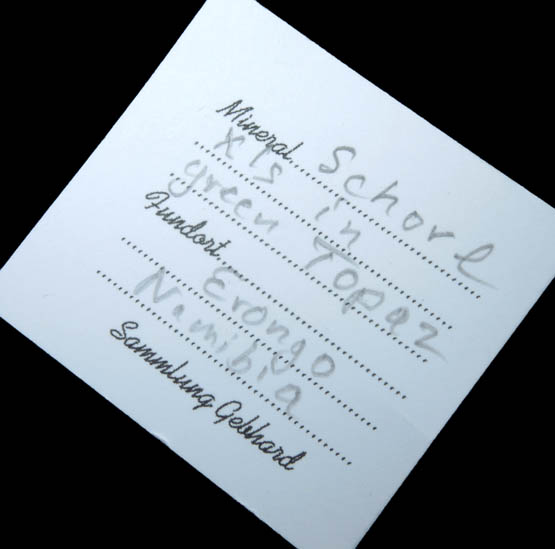 Mineral Schorl
xls in
green Topaz
Fundort
Erongo
Namibia
Sammlung Gebhard